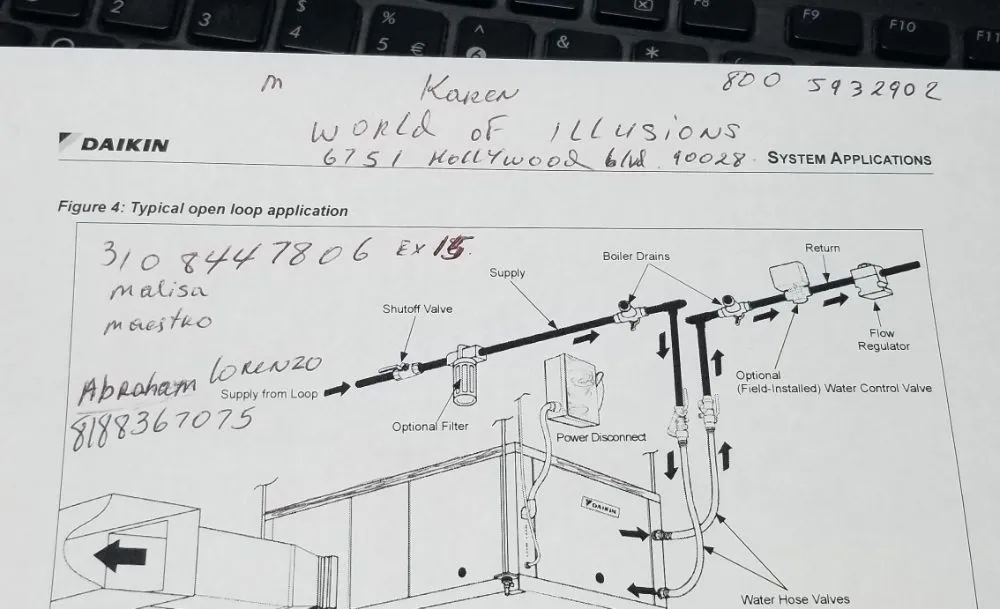 2
3
$
4
%
5 €
^
6
&
*
F8
F9
F10
F11
m Karen 800 5932902
World of ILLUSIONS
6751 Hollywood blvd. 90028
DAIKIN
SYSTEM APPLICATIONS
Figure 4: Typical open loop application
310 8447806 Ex 15.
malisa
maestro
Abraham LORENZO
8188367075
Return
Boiler Drains
Supply
Shutoff Valve
Flow
Regulator
Optional
(Field-Installed) Water Control Valve
Supply from Loop
Optional Filter
Power Disconnect
DAIKIN
Water Hose Valves